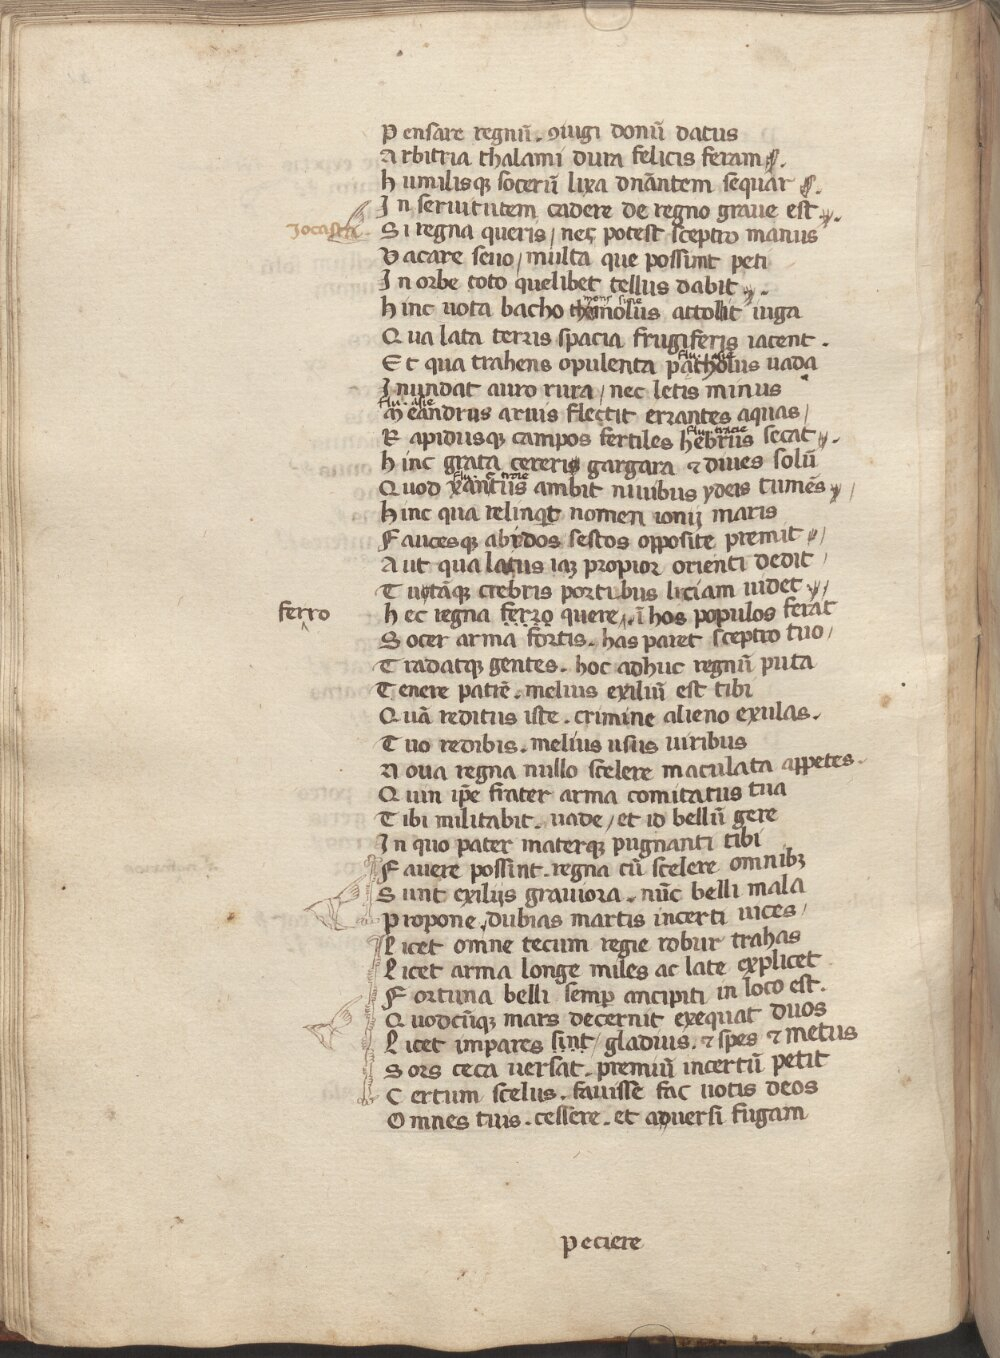 Pensare regnū. ꝯiugi donū datus
Arbitria thalami dura felicis feram
Humilisqꝫ socerū lixa dnāntem sequar
In seruitutem cadere de regno graue est
Jocasta
Si regna queris / nec potest sceptro manus
Vacare seuo / multa que possunt peti
In orbe toto quelibet tellus dabit
mons sirie
Hinc uota bacho thimolus attollit iuga
Qua lata terris spacia frugiferis iacent.
flu. asie
Et qua trahens opulenta patholus uada
Inundat auro rura / nec letis minus
flu. asie
Meandrus aruis flectit errantes aquas /
flu. tracie
Rapidusqꝫ campos fertiles hebrus secat
Hinc grata cereris gargara ⁊ diues solū
flu. troie
Quod xantus ambit niuibus ydeis tumēs /
Hinc qua relinqt nomen ionij maris
Faucesqꝫ abydos sestos opposite premit /
Aut qua latus iaꝫ propior orienti dedit /
Tutāqꝫ crebris portibus liciam uidet
ferro
Hec regna ferro quere. ī hos populos ferat
Socer arma fortis. has paret sceptro tuo /
Tradatqꝫ gentes. hoc adhuc regnū puta
Tenere patrē. melius exiliū est tibi
Quā reditus iste. crimine alieno exulas.
Tuo redibis. melius usus uiribus
Noua regna nullo scelere maculata appetes.
Quin ip̄e frater arma comitatus tua
Tibi militabit. uade / et id bellū gere
In quo pater materqꝫ pugnanti tibi
Fauere possint. regna cū scelere omnibꝫ
Sunt exilijs grauiora. nūc belli mala
Propone, dubias martis incerti uices /
Licet omne tecum regie robur trahas
Licet arma longe miles ac late explicet
Fortuna belli semp ancipiti in loco est.
Quodcūqꝫ mars decernit exequat duos
Licet impares sint / gladius. ⁊ spes ⁊ metus
Sors ceca uersat. premiū incertū petit
Certum scelus. fauisse fac uotis deos
Omnes tuis. cessere. et aduersi fugam
peciere